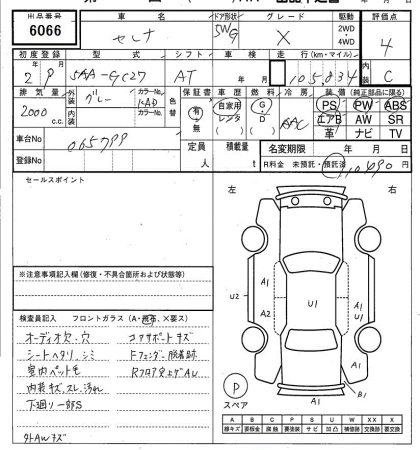 出品番号 車名 ドア形状 グレード 駆動 評価点
6066 セレナ 5W X 2WD・4WD 4
初度登録 型式 シフト 車検 走行(km・マイル) 内装
2 9 5AA-GC27 AT 年 月 105834 C
排気量 外装 グレー カラーNo. KAD 色替 保証書 車歴 燃料 冷房 装備(純正部品に限る)
2000 c.c. 内装 カラーNo. 有・無 自家用 レンタ G・D AAC PS PW ABS
エアB AW SR
革 ナビ TV
車台No 065799 定員 人 積載量 t 名変期限 年 月 日
登録No R料金 未預託・預託済 円
セールスポイント
左 右
※注意事項記入欄(修復・不具合箇所および状態等)
A1 A1
U2 A2 U1 U1
A1
検査員記入 フロントガラス(A・無, X要ス)
オーディオ欠・穴 コアサポートキズ
シートヘタリ、シミ Fフェンダー脱着跡
室内ペット毛 Rフロア突上ゲAU
内装キズ、スレ、汚れ
下廻り一部S
外AWキズ
P
スペア
B1
A1
A B C P S U W XX X
線キズ 要板金 腐蝕 要塗装 サビ 凹凸 補修跡 交換跡 要交換